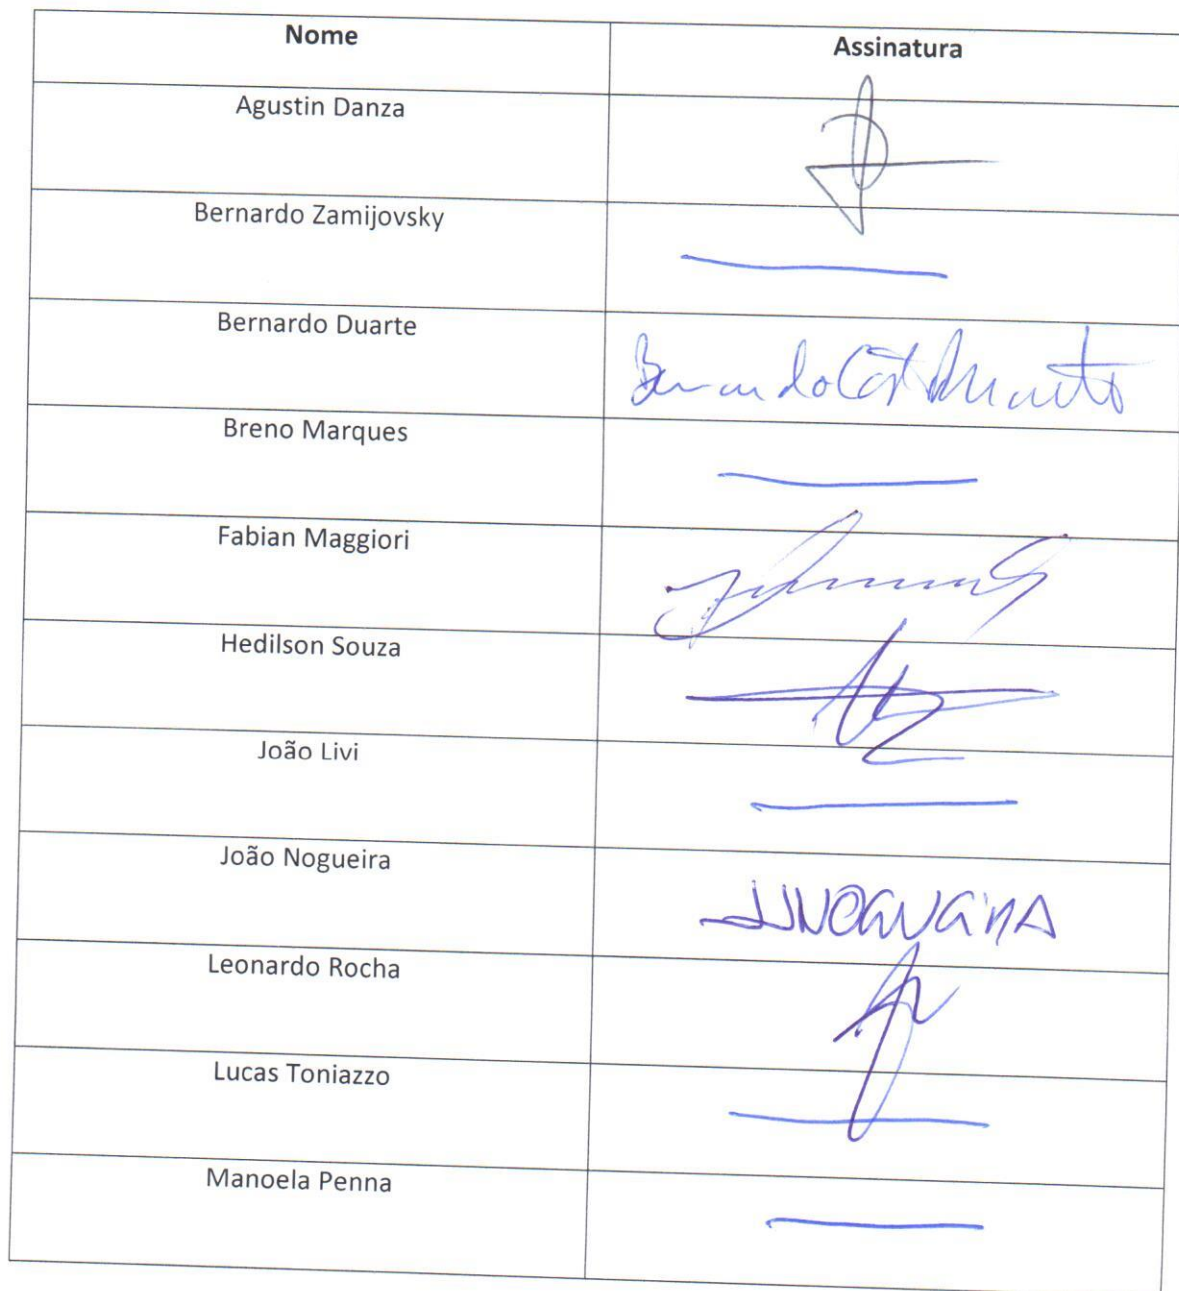 Nome Assinatura
Agustin Danza
Bernardo Zamijovsky
Bernardo Duarte
Breno Marques
Fabian Maggiori
Hedilson Souza
João Livi
João Nogueira
Leonardo Rocha
Lucas Toniazzo
Manoela Penna